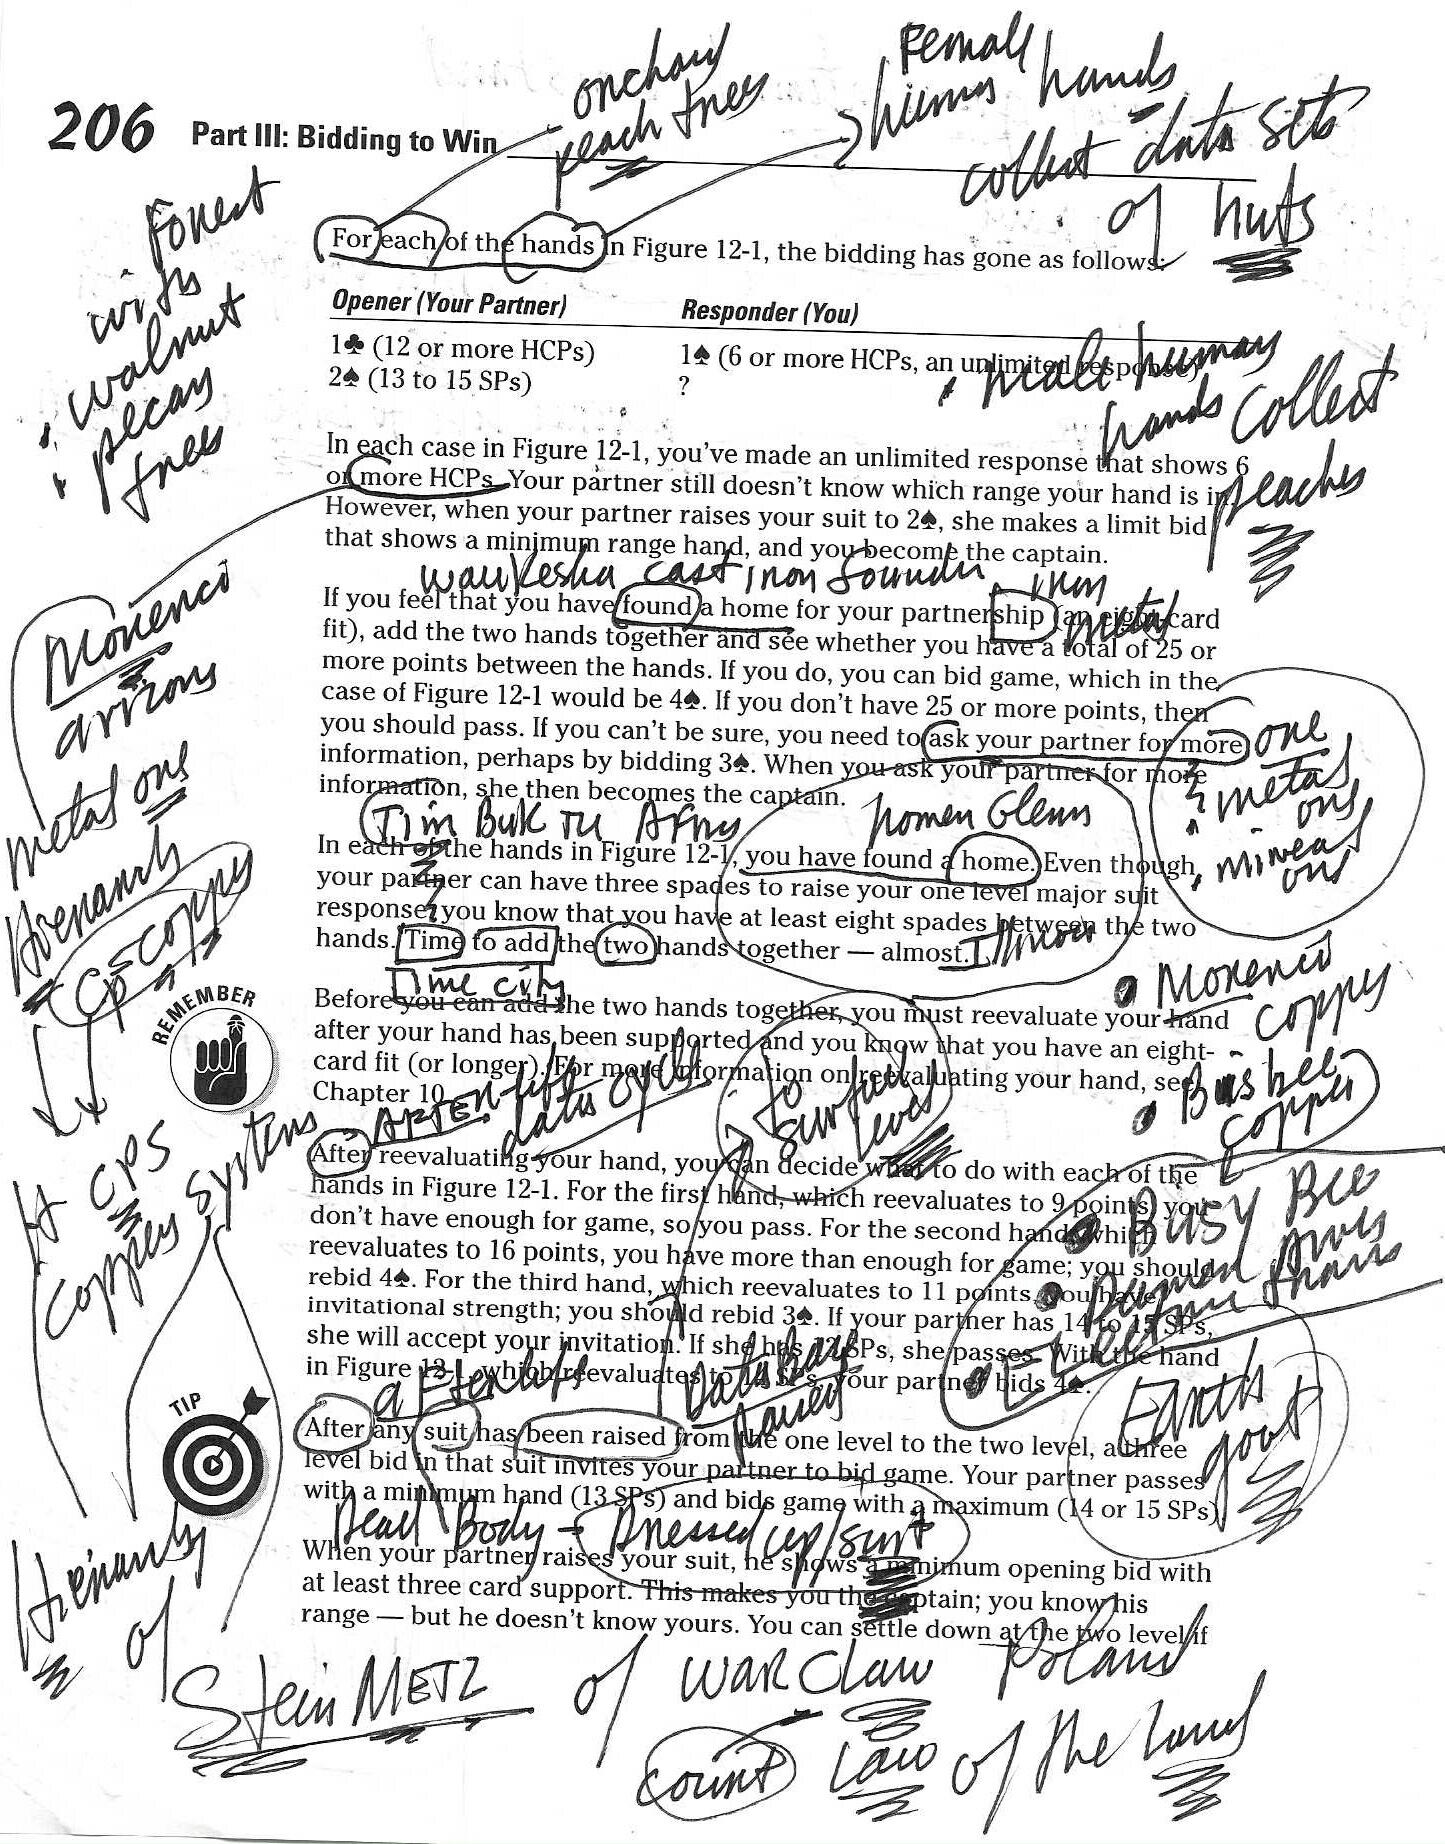 orchard
peach trees
Female
human hands
collect data sets
of nuts
206 Part III: Bidding to Win
Forest
with
walnut
pecan
trees
For each of the hands in Figure 12-1, the bidding has gone as follows:
Opener (Your Partner) Responder (You)
1♣ (12 or more HCPs) 1♠ (6 or more HCPs, an unlimited response)
2♠ (13 to 15 SPs) ?
male human
hands collect
peaches
In each case in Figure 12-1, you've made an unlimited response that shows 6
or more HCPs. Your partner still doesn't know which range your hand is in.
However, when your partner raises your suit to 2♠, she makes a limit bid
that shows a minimum range hand, and you become the captain.
Waukesha cast iron
iron
metal
If you feel that you have found a home for your partnership (an eight-card
fit), add the two hands together and see whether you have a total of 25 or
more points between the hands. If you do, you can bid game, which in the
case of Figure 12-1 would be 4♠. If you don't have 25 or more points, then
you should pass. If you can't be sure, you need to ask your partner for more
information, perhaps by bidding 3♠. When you ask your partner for more
information, she then becomes the captain.
Morenci
metal
one
metal
Tim Buk Tu
Homer Glenn
In each of the hands in Figure 12-1, you have found a home. Even though
your partner can have three spades to raise your one level major suit
response, you know that you have at least eight spades between the two
hands. Time to add the two hands together — almost.
Time city
REMEMBER
Before you can add the two hands together, you must reevaluate your hand
after your hand has been supported and you know that you have an eight-
card fit (or longer). For more information on reevaluating your hand, see
Chapter 10.
Morenci
copper
Bisbee
copper
AFTER-life
data cycle
to
surface
level
CPS
Copper Systems
After reevaluating your hand, you can decide what to do with each of the
hands in Figure 12-1. For the first hand, which reevaluates to 9 points, you
don't have enough for game, so you pass. For the second hand, which
reevaluates to 16 points, you have more than enough for game; you should
rebid 4♠. For the third hand, which reevaluates to 11 points, you have
invitational strength; you should rebid 3♠. If your partner has 14 to 15 SPs,
she will accept your invitation. If she has 13 SPs, she passes. With the hand
in Figure 12-1, which reevaluates to 14 SPs, your partner bids 4♠.
Busy Bee
Human
Earth
govt
afterlife
Data Base
TIP
After any suit has been raised from the one level to the two level, a three
level bid in that suit invites your partner to bid game. Your partner passes
with a minimum hand (13 SPs) and bids game with a maximum (14 or 15 SPs).
Dead Body - Dressed up/suit
When your partner raises your suit, he shows a minimum opening bid with
at least three card support. This makes you the captain; you know his
range — but he doesn't know yours. You can settle down at the two level if
of
SteinMETZ of WARClaw Poland
count Law of the land